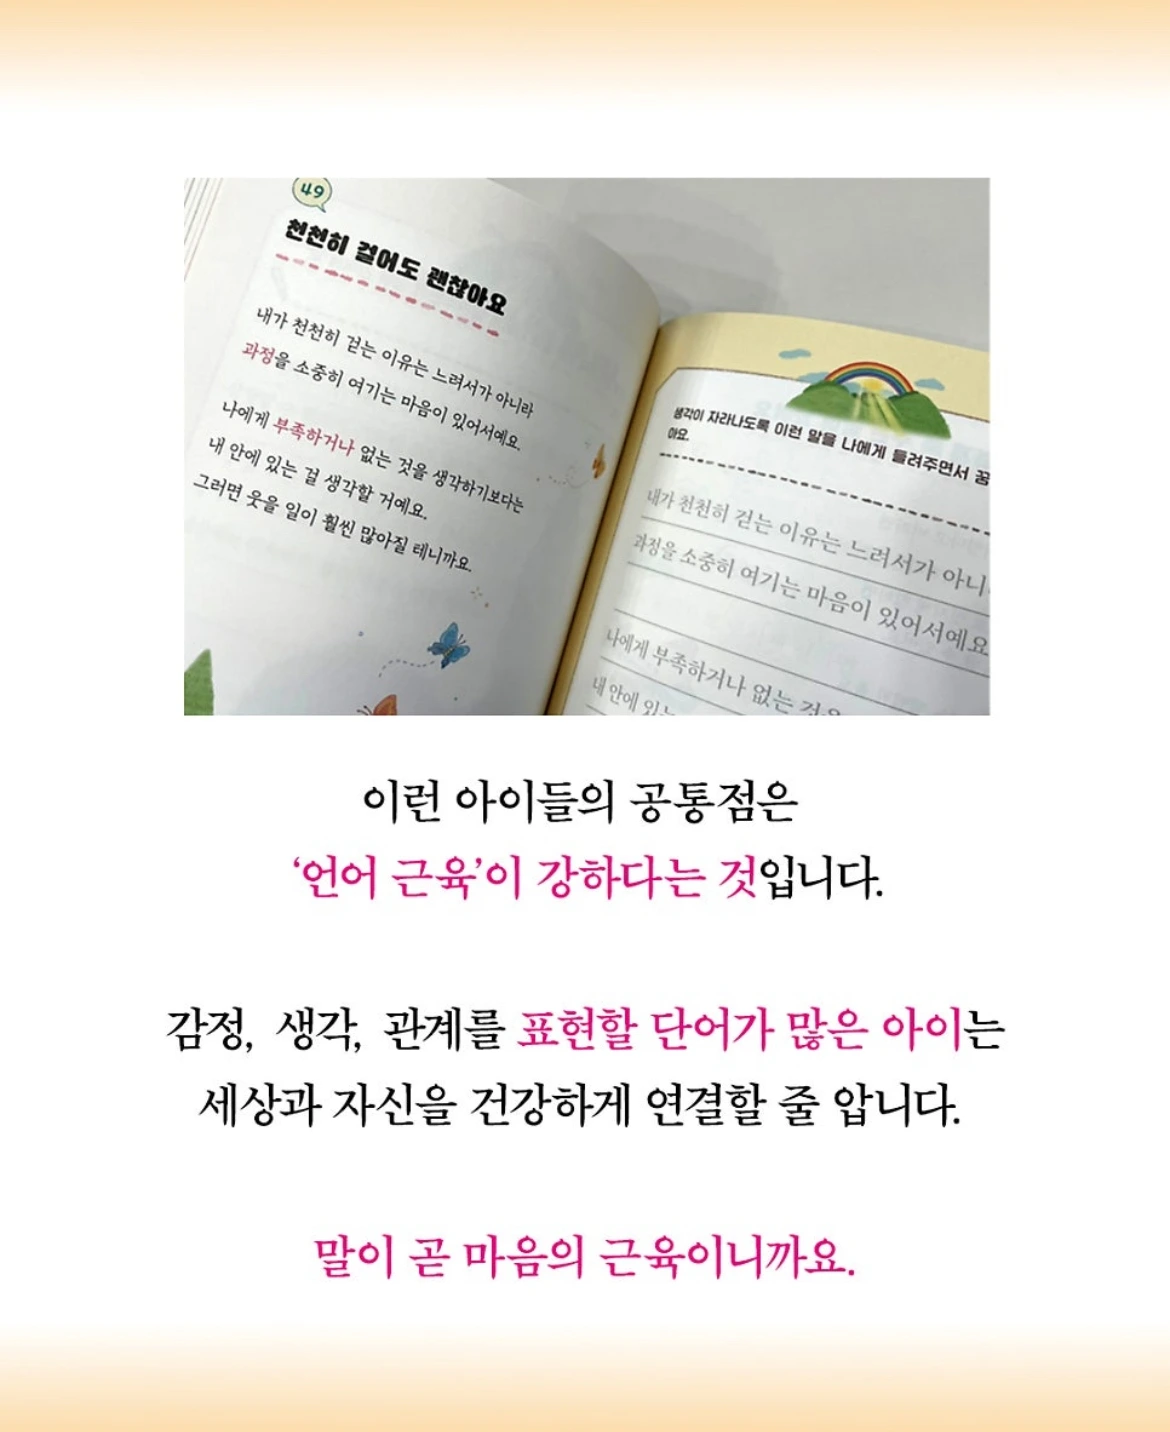 49
천천히 걸어도 괜찮아요
내가 천천히 걷는 이유는 느려서가 아니라
과정을 소중히 여기는 마음이 있어서예요.
나에게 부족하거나 없는 것을 생각하기보다는
내 안에 있는 걸 생각할 거예요.
그러면 웃을 일이 훨씬 많아질 테니까요.
생각이 자라나도록 이런 말을 나에게 들려주면서 꿈
아요.
내가 천천히 걷는 이유는 느려서가 아니
과정을 소중히 여기는 마음이 있어서예요
나에게 부족하거나 없는 것을
내 안에 있는
이런 아이들의 공통점은
‘언어 근육’이 강하다는 것입니다.
감정, 생각, 관계를 표현할 단어가 많은 아이는
세상과 자신을 건강하게 연결할 줄 압니다.
말이 곧 마음의 근육이니까요.